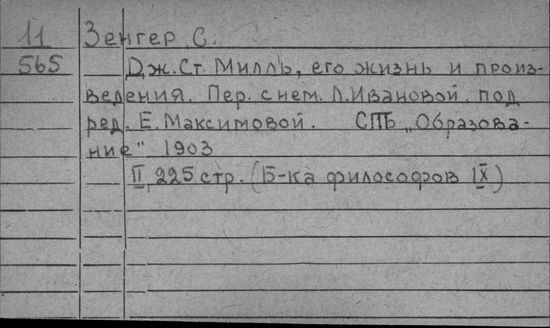 11 Зенгер С.
565 Дж. Ст. Милль, его жизнь и произ-
ведения. Пер. с нем. Л. Ивановой. под
ред. Е. Максимовой. СПБ „Образова-
ние" 1903
II, 225 стр. (Б-ка философов IX)